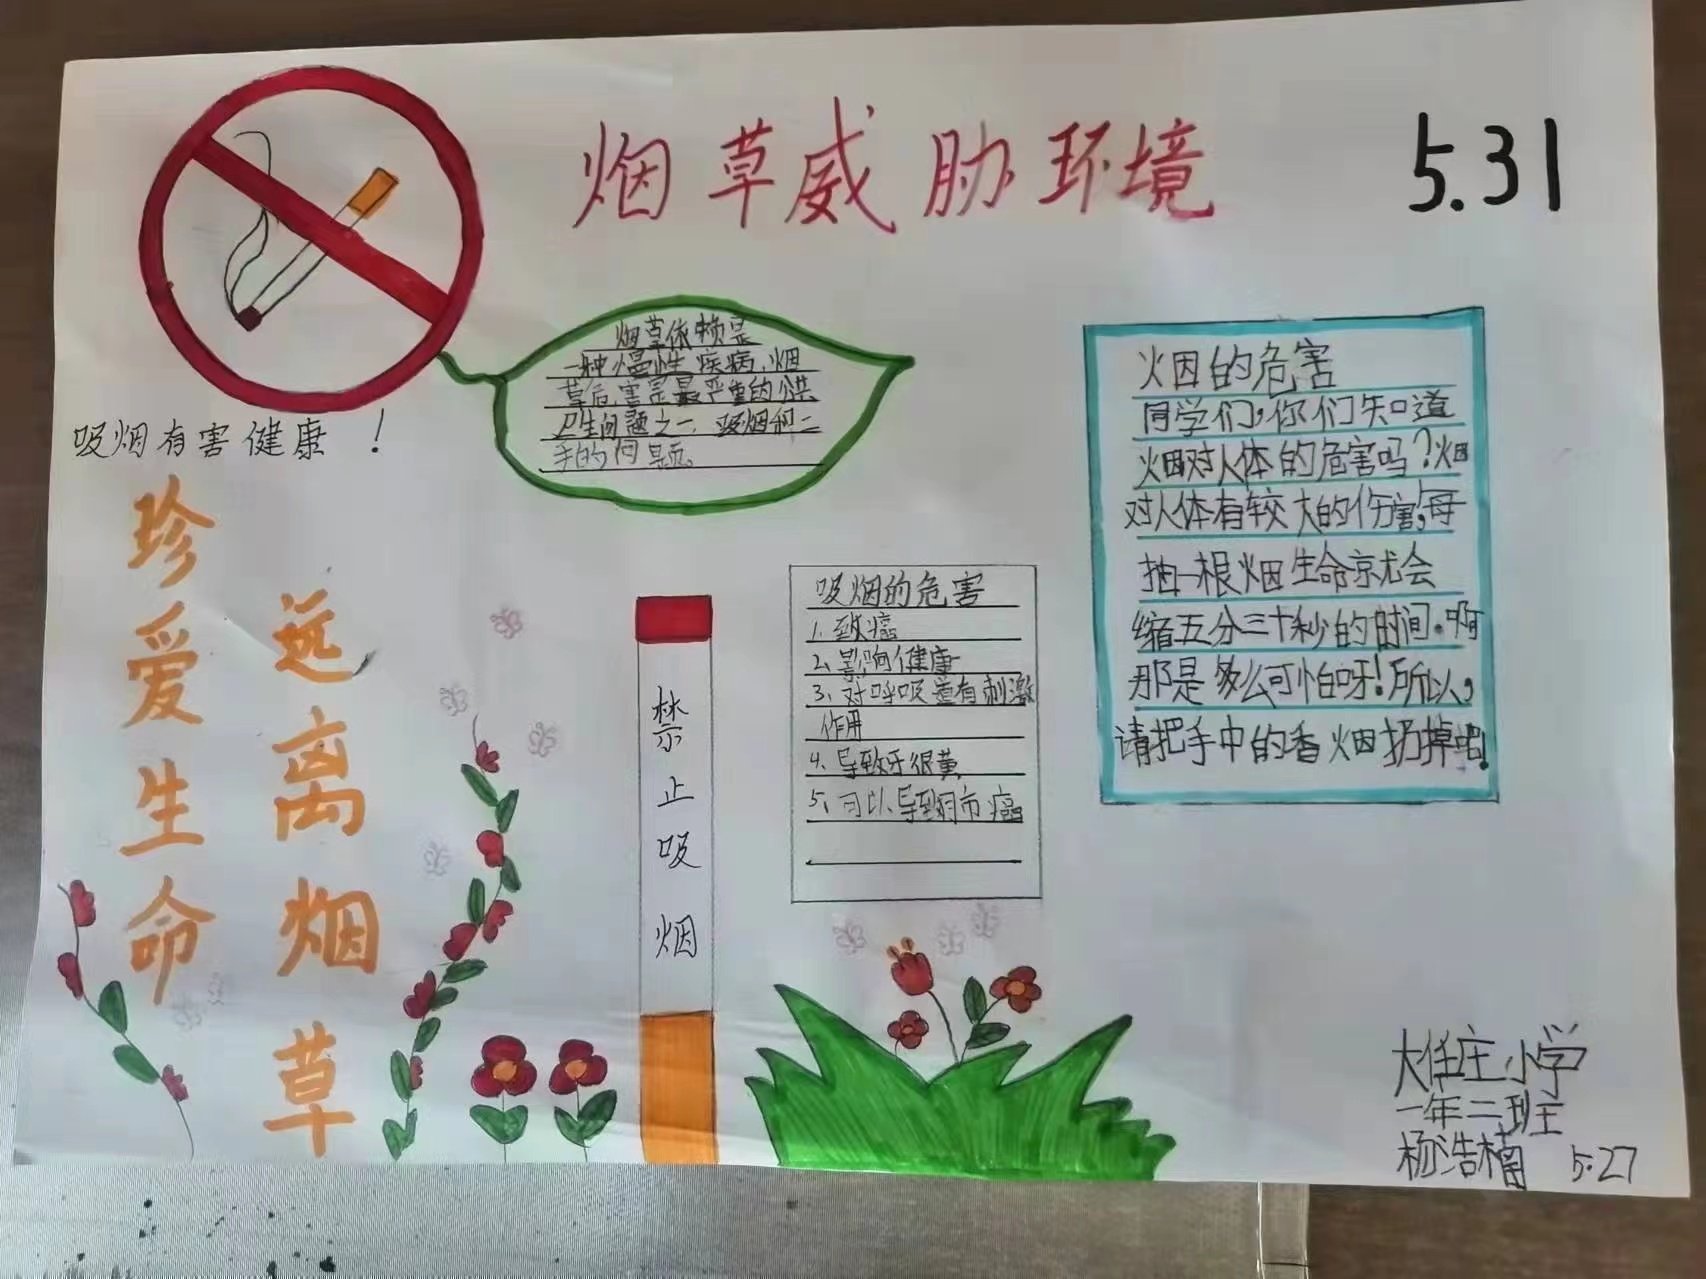 烟草威胁环境
5.31
吸烟有害健康！
珍爱生命
远离烟草
烟草依赖是
一种慢性疾病，烟
草危害是最严重的公共
卫生问题之一，吸烟和二
手的问题。
禁止吸烟
吸烟的危害
1、致癌
2、影响健康
3、对呼吸道有刺激
作用
4、导致牙很黄
5、可以导致肺癌
烟的危害
同学们，你们知道
烟对人体的危害吗？烟
对人体有较大的伤害，每
抽一根烟生命就会
缩五分三十秒的时间。啊
那是多么可怕呀！所以，
请把手中的香烟扔掉吧！
大任庄小学
一年二班
杨浩楠 5.27